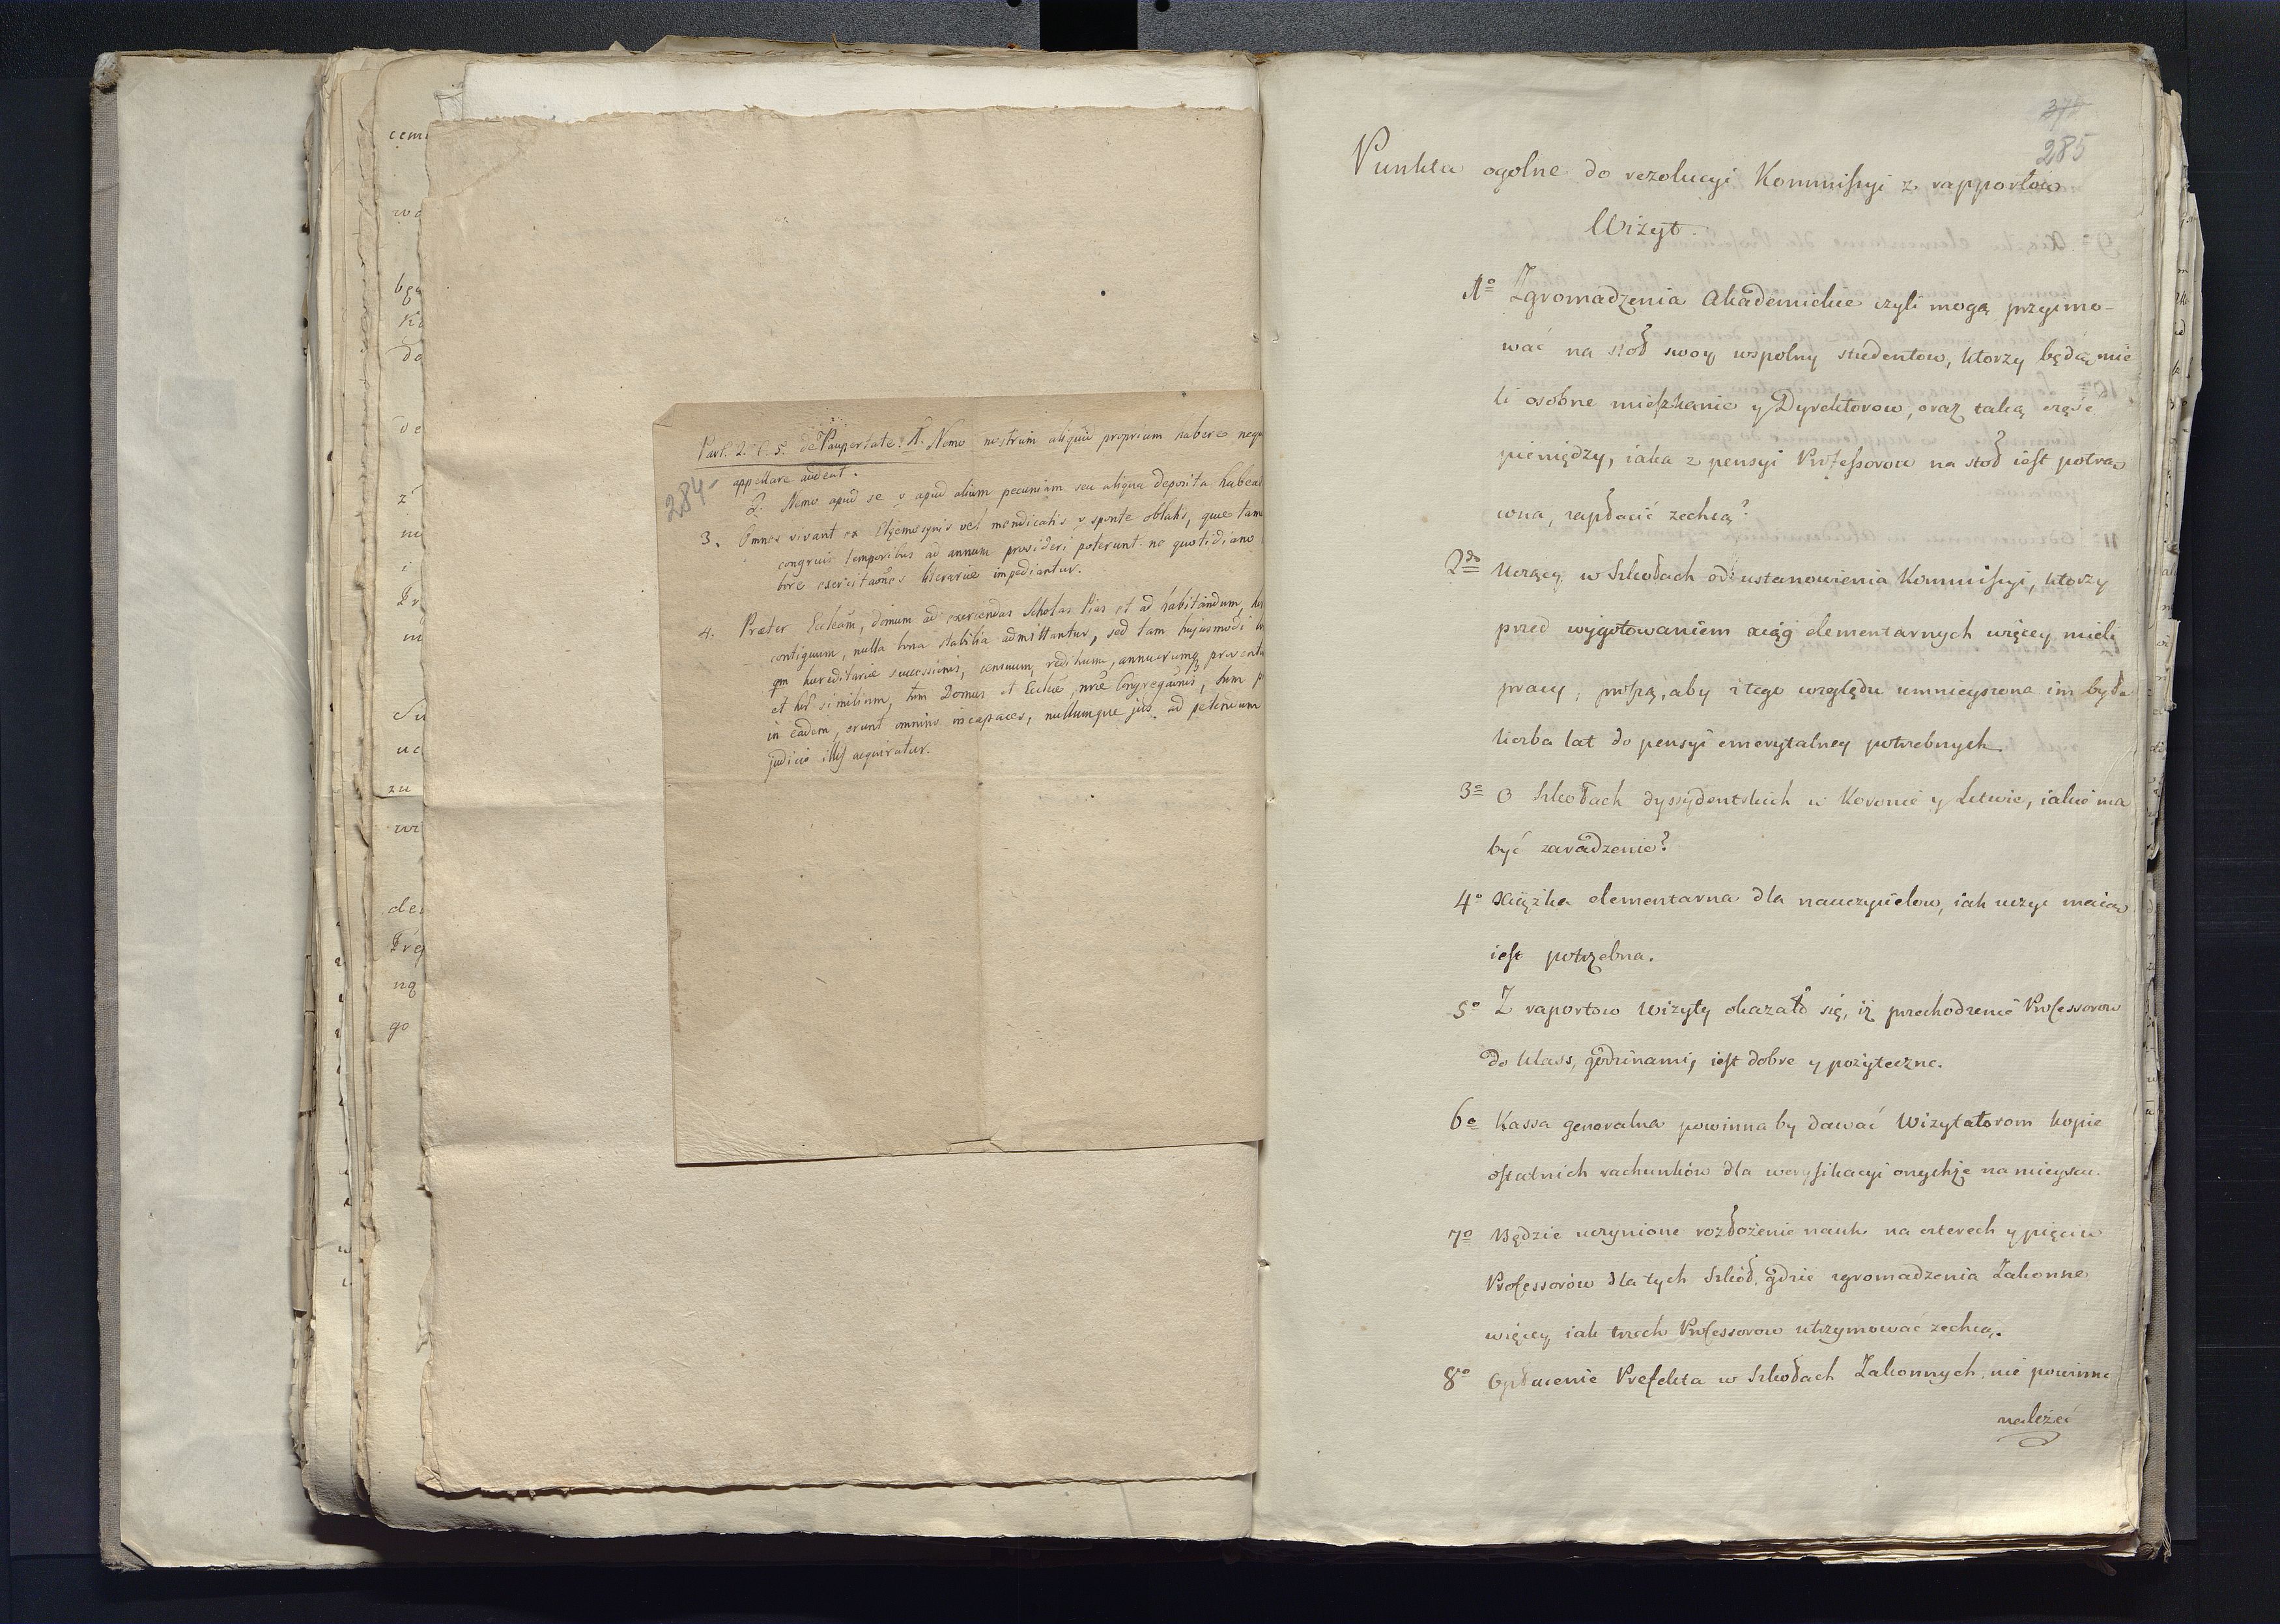 284
Part. 2. C. 5. de Paupertate. 1. Nemo nostrum aliquid proprium habere
appellare audeat.
2. Nemo apud se v apud alium pecuniam seu aliqua deposita
3. Omnes vivant ex Elęemosynis vel mendicatis v sponte oblatis, quæ
congruis temporibus ad annum provideri poterunt. ne quotidiano
bore exercitaões literariæ impediantur.
4. Præter Eccleam, domum ad exercendas Scholas Pias et ad habitandum,
contiguum, nulla bona stabilia admittantur, sed tam hujusmodi
qm hæreditariæ successionis, censuum, redituum, annuorumq
et his similium, tum Domus et Eccleæ nræ Congregaõnis, dum
in eadem, erunt omnino incapaces, nullumque jus ad petendum
judicio illis acquiratur.
375
285
Punkta ogolne do rezolucyi Kommissyi z rapportow
Wizyt.
1o Zgromadzenia Akademickie czyli mogą przyimo-
wać na stoł swoy wspolny studentow, ktorzy będą mie
li osobne mieszkanie y Dyrektorow, oraz taką część
pieniędzy, iaka z pensyi Professorow na stoł iest potrą-
cona, zapłacić zechcą?
2do Uczący w Szkołach od ustanowienia Kommissyi, ktorzy
przed wygotowaniem xiąg elementarnych więcey mieli
pracy, proszą, aby z tego względu umnieyszona im była
liczba lat do pensyi emerytalney potrzebnych.
3o O Szkołach dyssydentskich w Koronie y Litwie, iakie ma
być zaradzenie?
4o Xiążka elementarna dla nauczycielow, iak uczyć maią
iest potrzebna.
5o Z raportow Wizyty okazało się, iż przechodzenie Professorow
do klass, godzinami, iest dobre y pożyteczne.
6o Kassa generalna powinna by dawać Wizytatorom kopie
ostatnich rachunków dla weryfikacyi onychże na mieyscu.
7o Będzie uczynione rozłożenie nauk na czterech y pięciu
Professorów dla tych Szkół, gdzie zgromadzenia Zakonne
więcey iak trzech Professorow utrzymować zechcą.
8o Opłacenie Prefekta w Szkołach Zakonnych, nie powinno
należeć